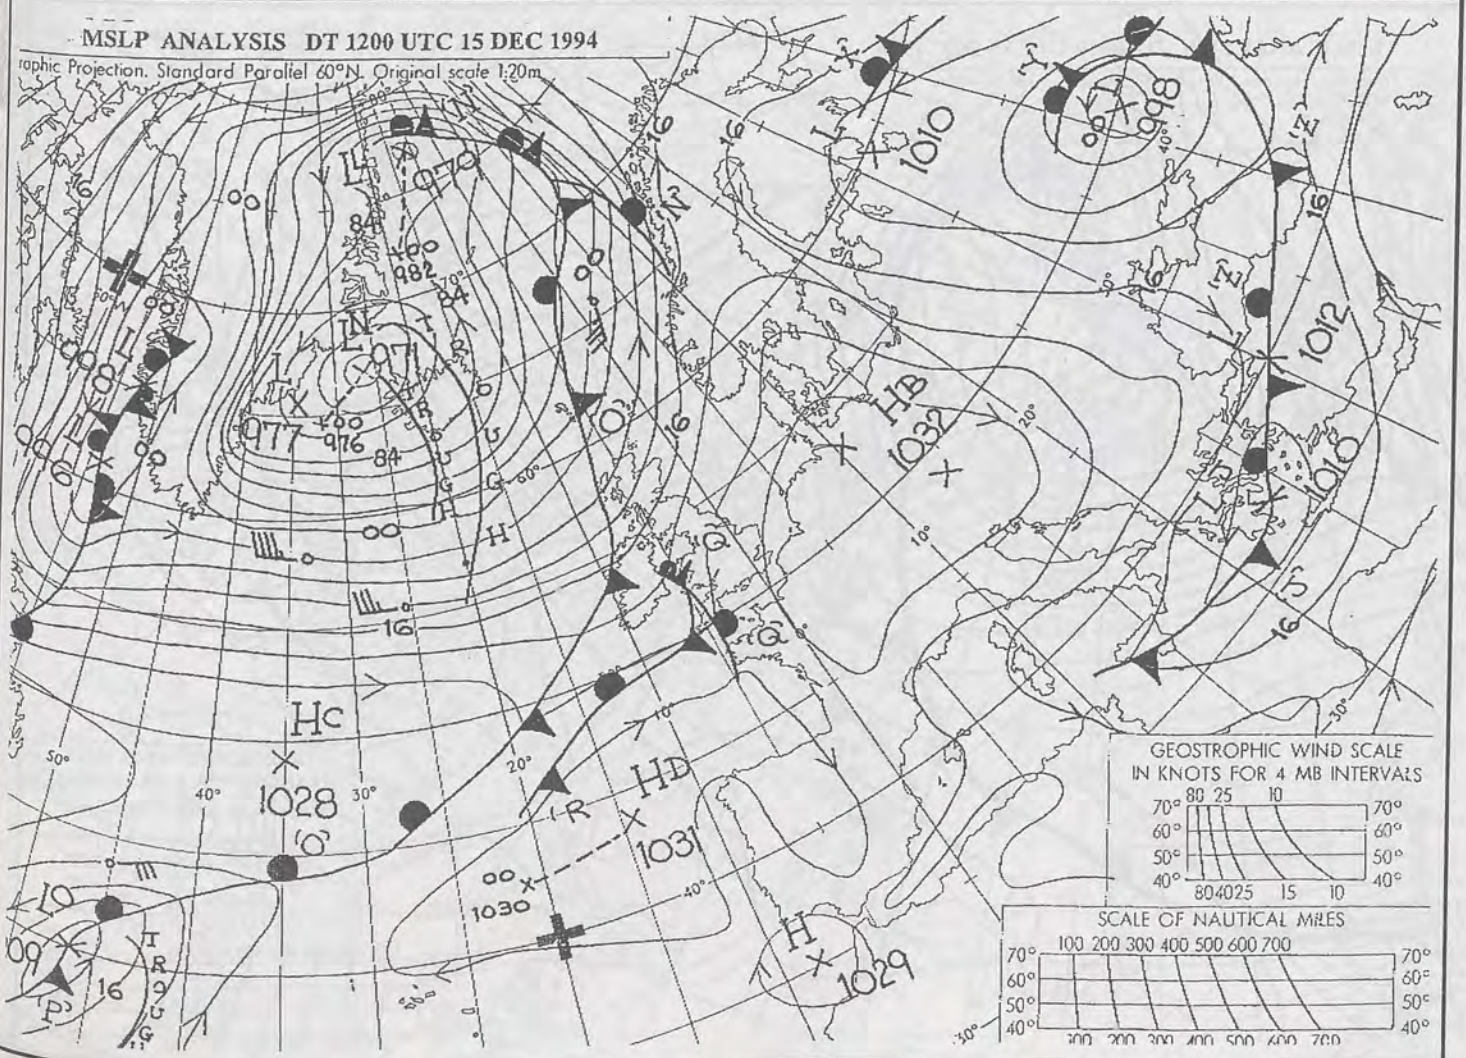 MSLP ANALYSIS DT 1200 UTC 15 DEC 1994
raphic Projection. Standard Parallel 60°N. Original scale 1:20m
16
16
16
L
1010
L
998
00
40°
00
84
00
982
970
84
70°
LN
971
L
977
00
976
84
TROUGH
TROUGH
60°
00
00
16
O
16
00
00
00
00
16
16
1012
HB
1032
20°
10°
10°
L
1010
S
16
30°
Q
Q
HC
1028
O
50°
40°
30°
20°
10°
HD
1031
R
00
1030
40°
H
1029
30°
LO
09
P
16
TROUG
GEOSTROPHIC WIND SCALE
IN KNOTS FOR 4 MB INTERVALS
80 25 10
70° 70°
60° 60°
50° 50°
40° 40°
80 40 25 15 10
SCALE OF NAUTICAL MILES
100 200 300 400 500 600 700
70° 70°
60° 60°
50° 50°
40° 40°
100 200 300 400 500 600 700